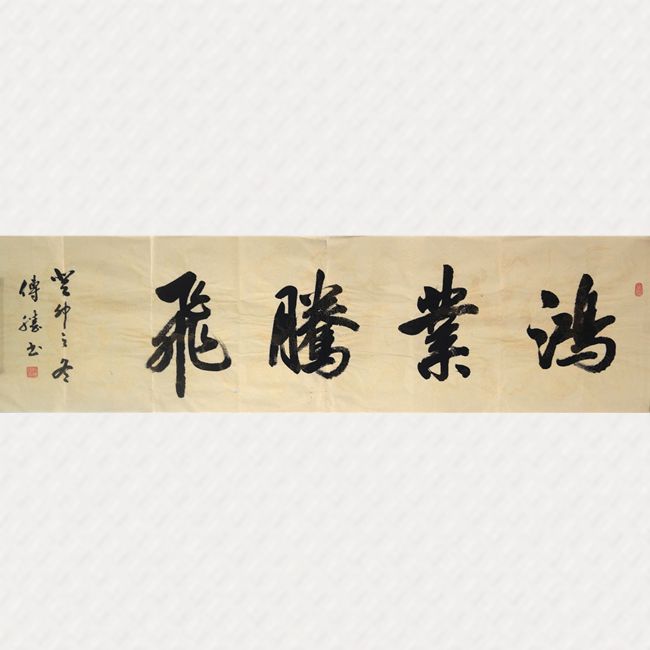 鴻業騰飛
癸卯之冬
傅勝書